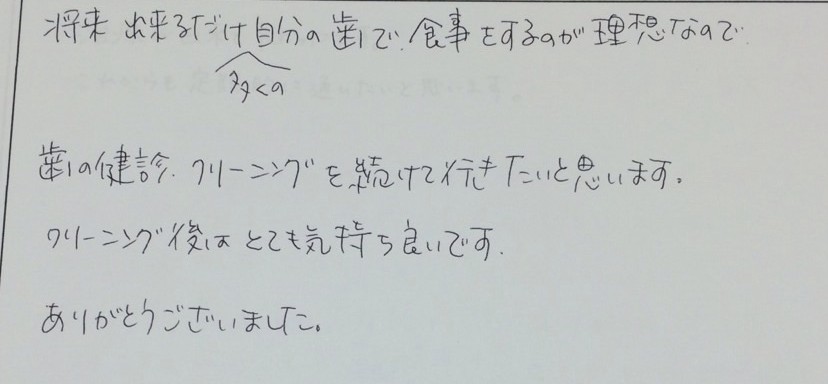 将来 出来るだけ自分の歯で、食事をするのが理想なので
多くの
歯の健診、クリーニングを続けて行きたいと思います。
クリーニング後は とても気持ち良いです。
ありがとうございました。